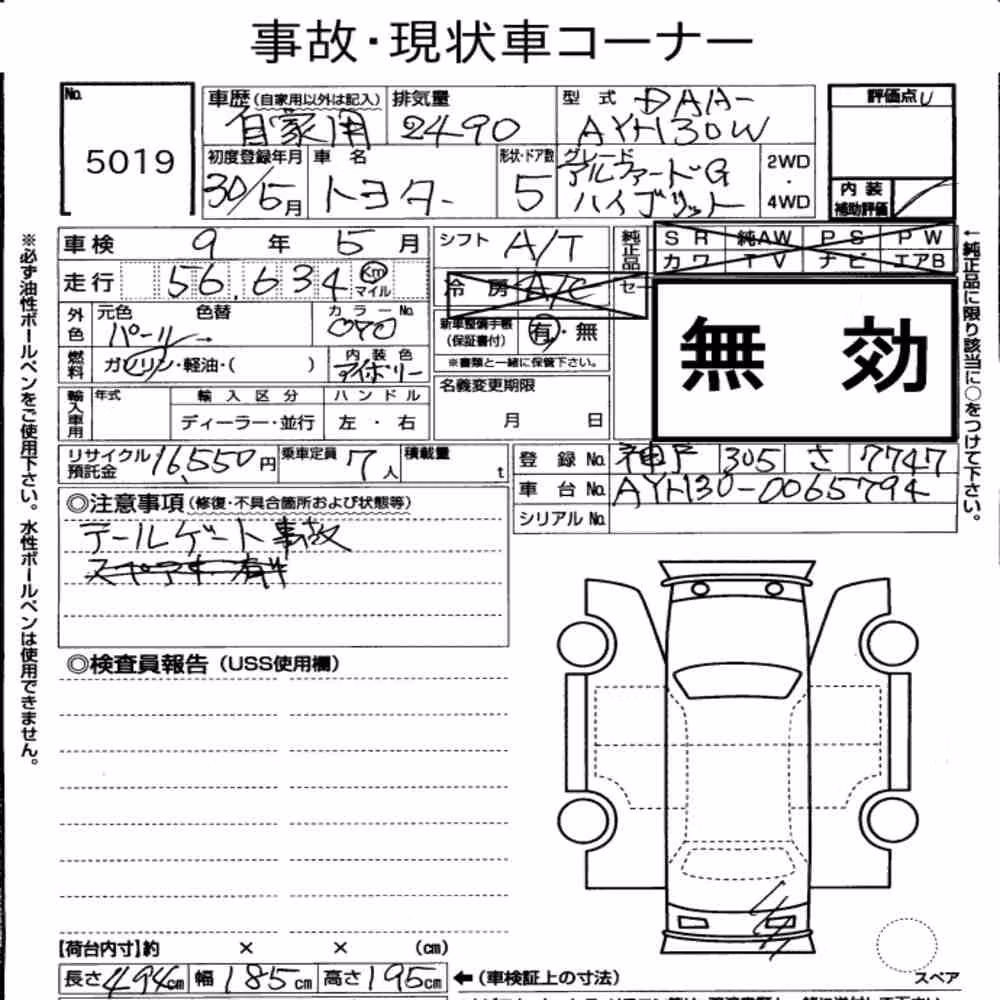 事故・現状車コーナー
No.
5019
車歴(自家用以外は記入) 自家用
排気量 2490
型式 DAA-
AYH30W
評価点
内装
補助評価
初度登録年月 30/5月
車名 トヨタ
形状・ドア数 5
グレード アルファードG
ハイブリット
2WD
・
4WD
車検 9年5月
シフト A/T
純正品
SR 純AW PS PW
カワ TV ナビ エアB
走行 56,634 Km
マイル
冷房 A/C
外色 元色 パール→ 色替
カラーNo. 070
新車整備手帳
(保証書付) 有・無
※書類と一緒に保管下さい。
無効
燃料 ガソリン・軽油・( )
内装色 アイボリー
名義変更期限
月 日
輸入車用 年式
輸入区分 ディーラー・並行
ハンドル 左・右
リサイクル
預託金 16,550円
乗車定員 7人
積載量 t
登録No. 神戸 305 さ 7747
車台No. AYH30-0065794
シリアルNo.
◎注意事項(修復・不具合箇所および状態等)
テールゲート事故
◎検査員報告(USS使用欄)
【荷台内寸】約 × × (cm)
長さ494cm 幅185cm 高さ195cm ←(車検証上の寸法)
スペア
※必ず油性ボールペンをご使用下さい。水性ボールペンは使用できません。
←純正品に限り該当に○をつけて下さい。